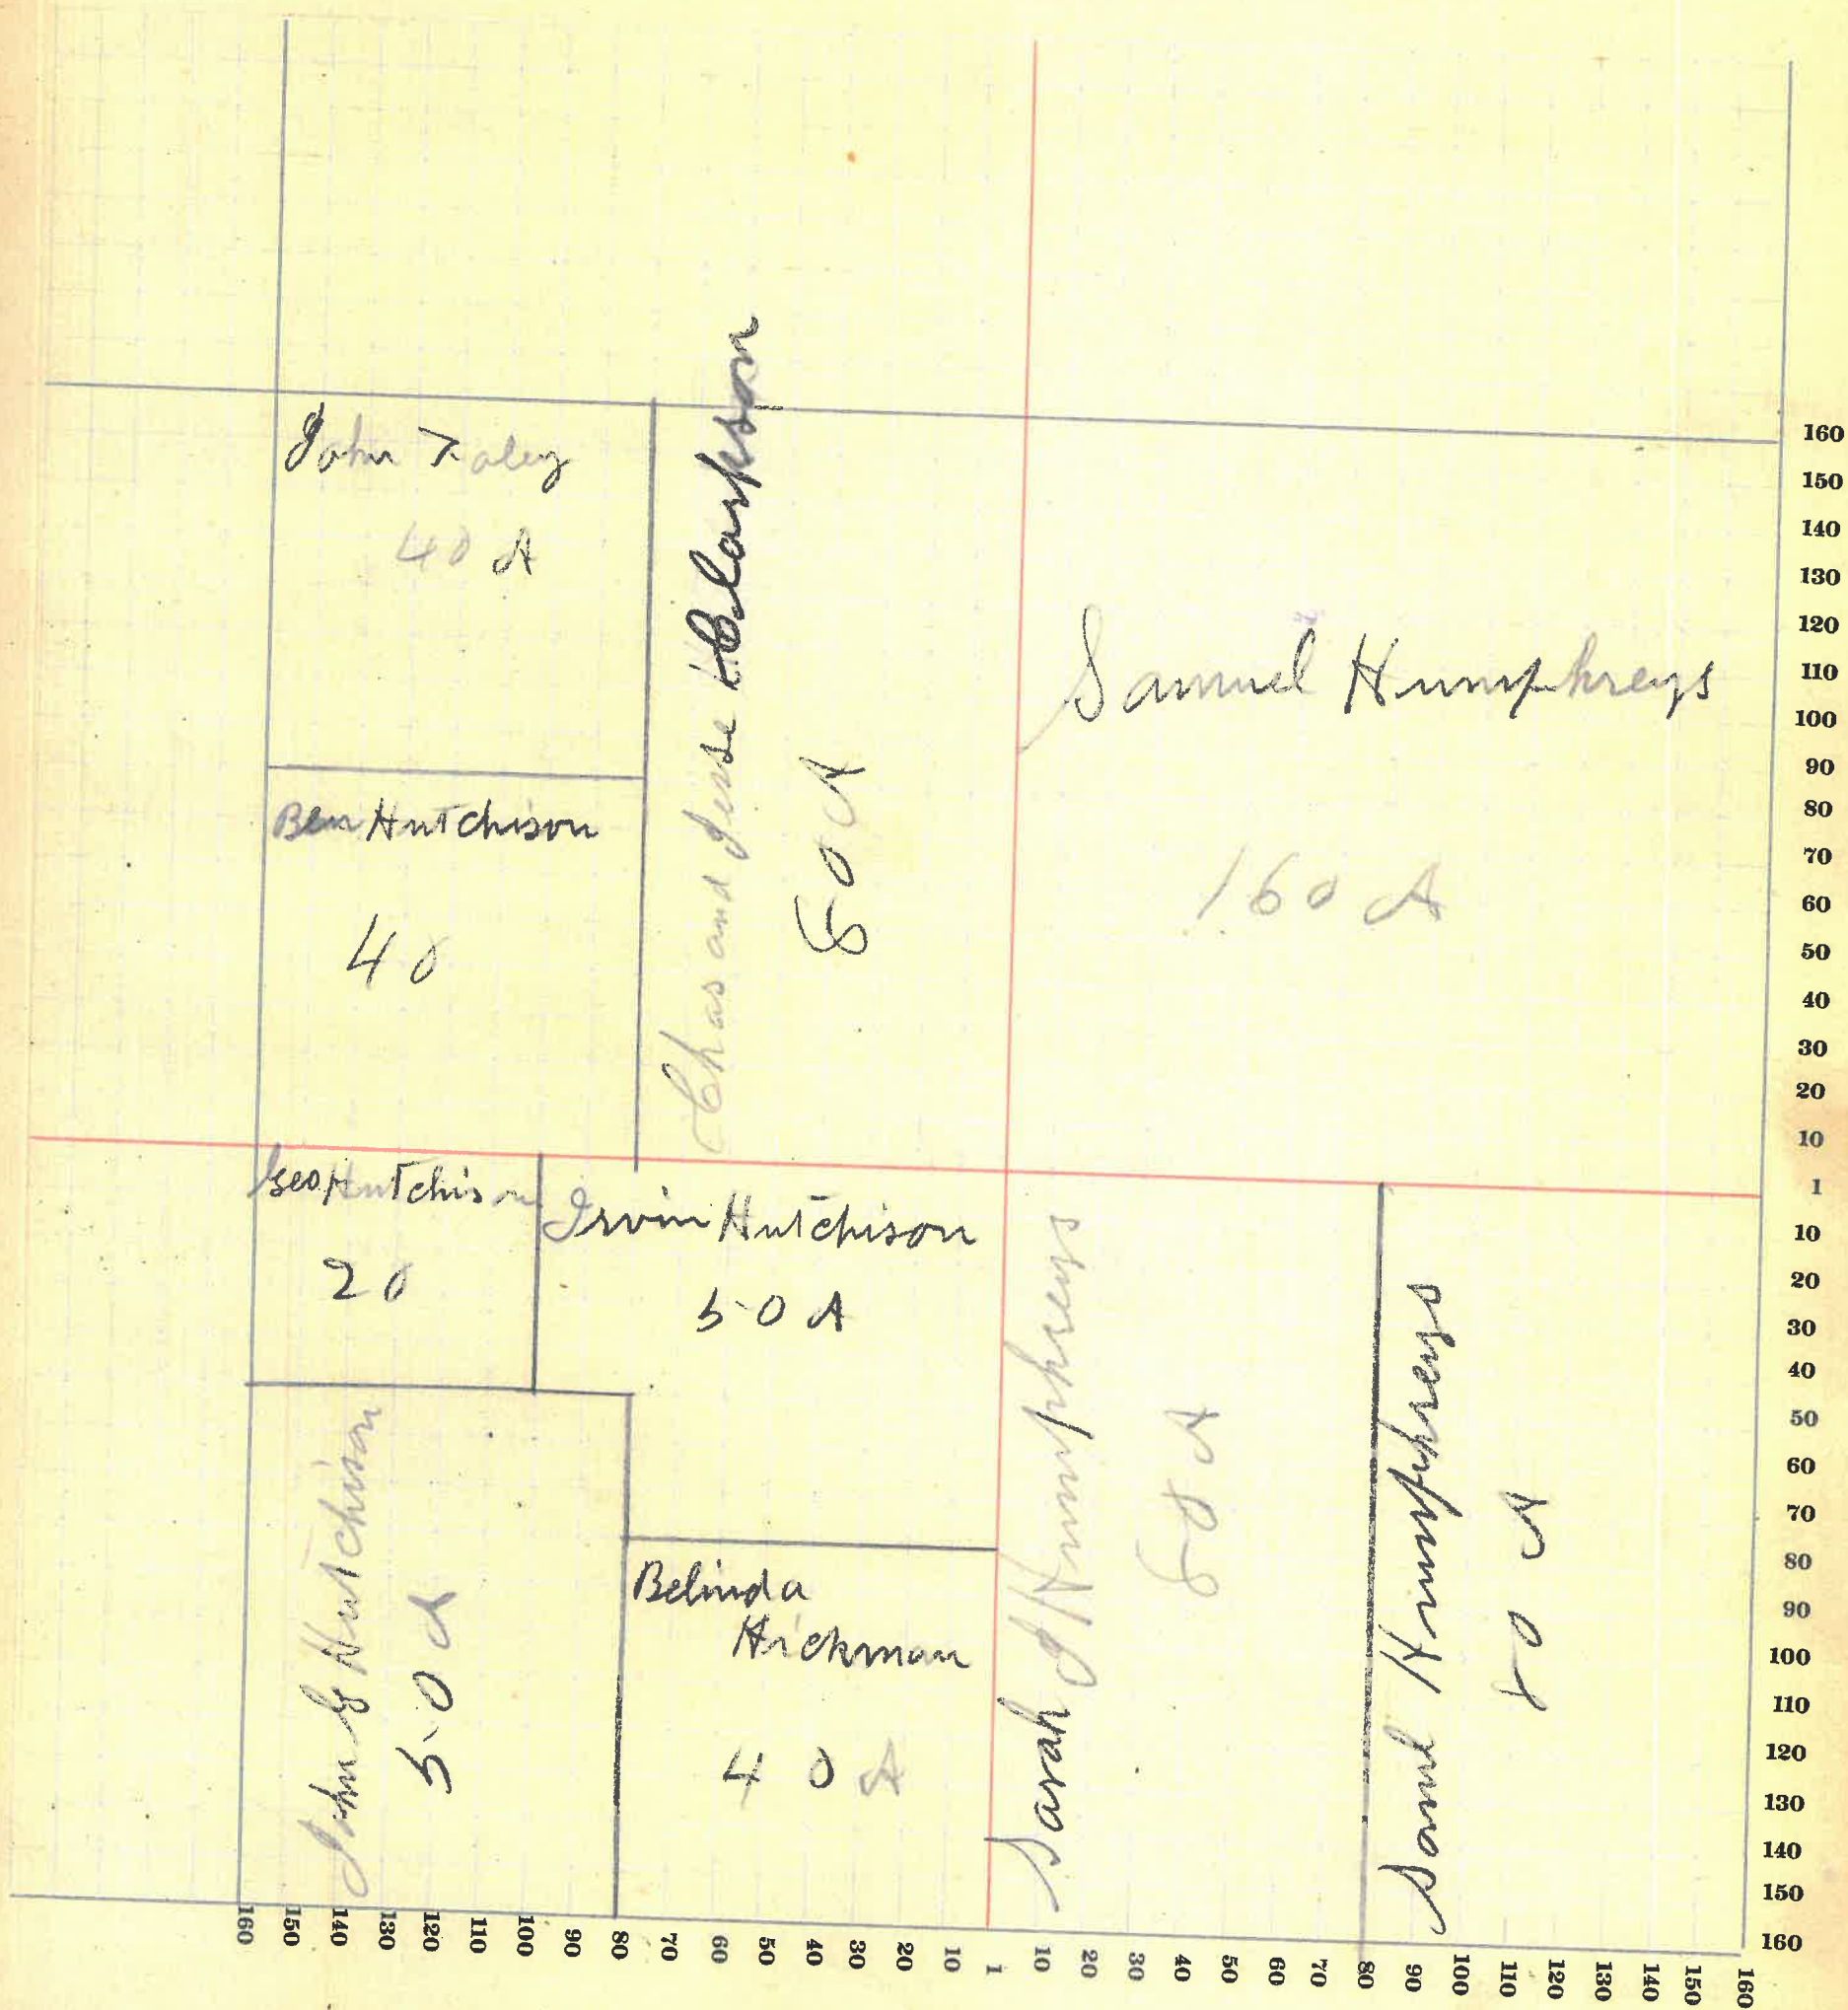 John Foley
40 A
Chas and Jesse H Clarkson
80 A
Samuel Humphreys
160 A
Ben Hutchison
40
Geo Hutchison
20
Irvin Hutchison
50 A
John G Hutchison
50 A
Belinda
Hickman
40 A
Sarah J Humphreys
80 A
Saml Humphreys
80 A
160
150
140
130
120
110
100
90
80
70
60
50
40
30
20
10
1
10
20
30
40
50
60
70
80
90
100
110
120
130
140
150
160
160 150 140 130 120 110 100 90 80 70 60 50 40 30 20 10 1 10 20 30 40 50 60 70 80 90 100 110 120 130 140 150 160